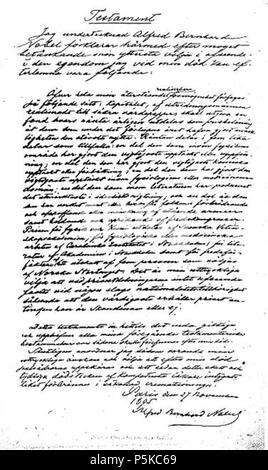 Testament
Jag undertecknad Alfred Bernhard
Nobel förklarar härmed efter moget
betänkande min yttersta vilja i afseende
å den egendom jag vid min död kan ef-
terlemna vara följande:
Öfver hela min återstående förmögenhet förfoges
på följande sätt: kapitalet, af utredningsmännen
realiseradt till säkra värdepapper, skall utgöra en
fond hvars ränta årligen utdelas som prisbelöning
åt dem som under det förlupna året hafva gjort mensk-
ligheten den största nytta. Räntan delas i fem lika
delar som tillfalla: en del den som inom fysikens
område har gjort den vigtigaste upptäckt eller uppfin-
ning; en del den som har gjort den vigtigaste kemiska
upptäckt eller förbättring; en del den som har gjort den
vigtigaste upptäckt inom fysiologiens eller medicinens
domän; en del som inom litteraturen har producerat
det utmärktaste i idealisk rigtning; och en del åt den
som har verkat mest eller best för folkens förbrödrande
och afskaffande eller minskning af stående armeer
samt bildande och spridande af fredskongresser.
Prisen för fysik och kemi utdelas af Svenska Vetenskaps-
akademien; för fysiologiska eller medicinska
arbeten af Carolinska institutet i Stockholm; för lite-
ratur af Akademien i Stockholm samt för freds-
förfäktare af ett utskott af fem personer som väljas
af Norska Stortinget. Det är min uttryckliga
vilja att vid prisutdelningen intet afseende
fästes vid någon slags nationalitetstillhörighet
sålunda att den värdigaste erhåller priset an-
tingen han är Skandinav eller ej.
Detta testamente är hittills det enda giltiga
och upphäfver alla mina föregående testamentariska
bestämmelser om sådana skulle förefinnas efter min död.
Slutligen anordnar jag såsom varande min
uttryckliga önskan och vilja att efter min död
pulsådrorna uppskäras och att sedan detta skett och
tydliga dödstecken af kompetenta läkare intygats
liket förbrännes i så kallad crematorieugn.
Paris den 27 November
1895
Alfred Bernhard Nobel
alamy
P5KC69